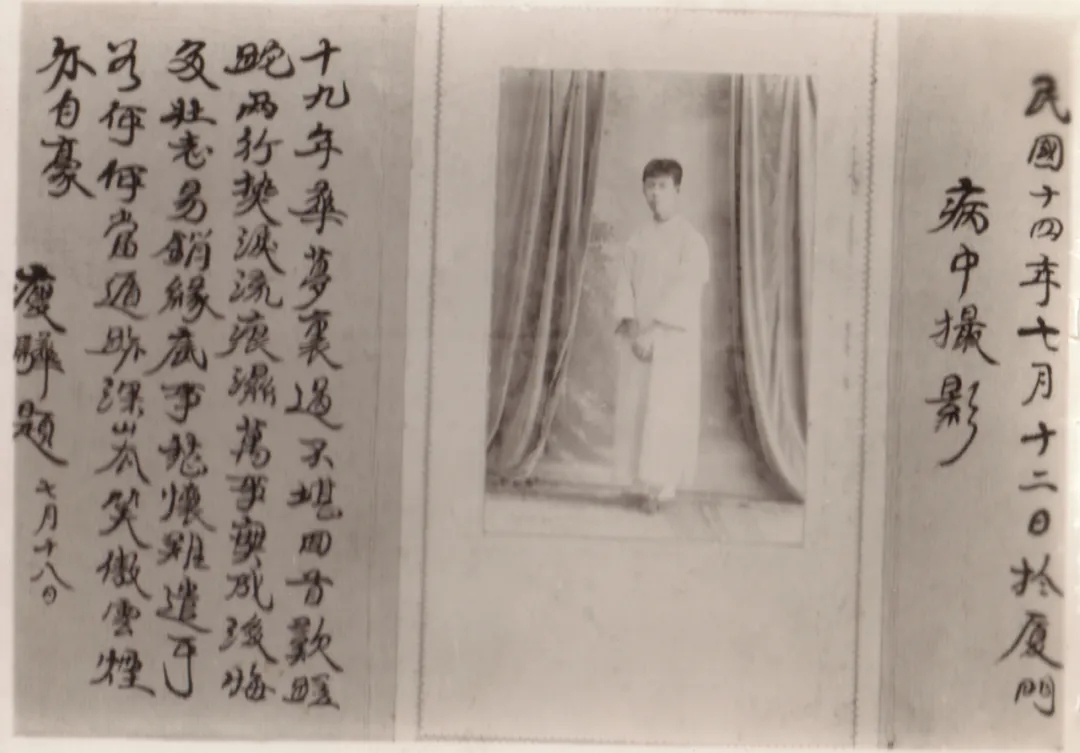 民國十四年七月十二日於厦門
病中攝影
十九年華夢裏過不堪回首歎蹉
跎兩行熱淚流痕濕萬事無成後悔
多壯志易銷緣底事愁懷難遣可
何何當遁跡深山去笑傲雲煙
亦自豪
瘦驊題 七月十八日